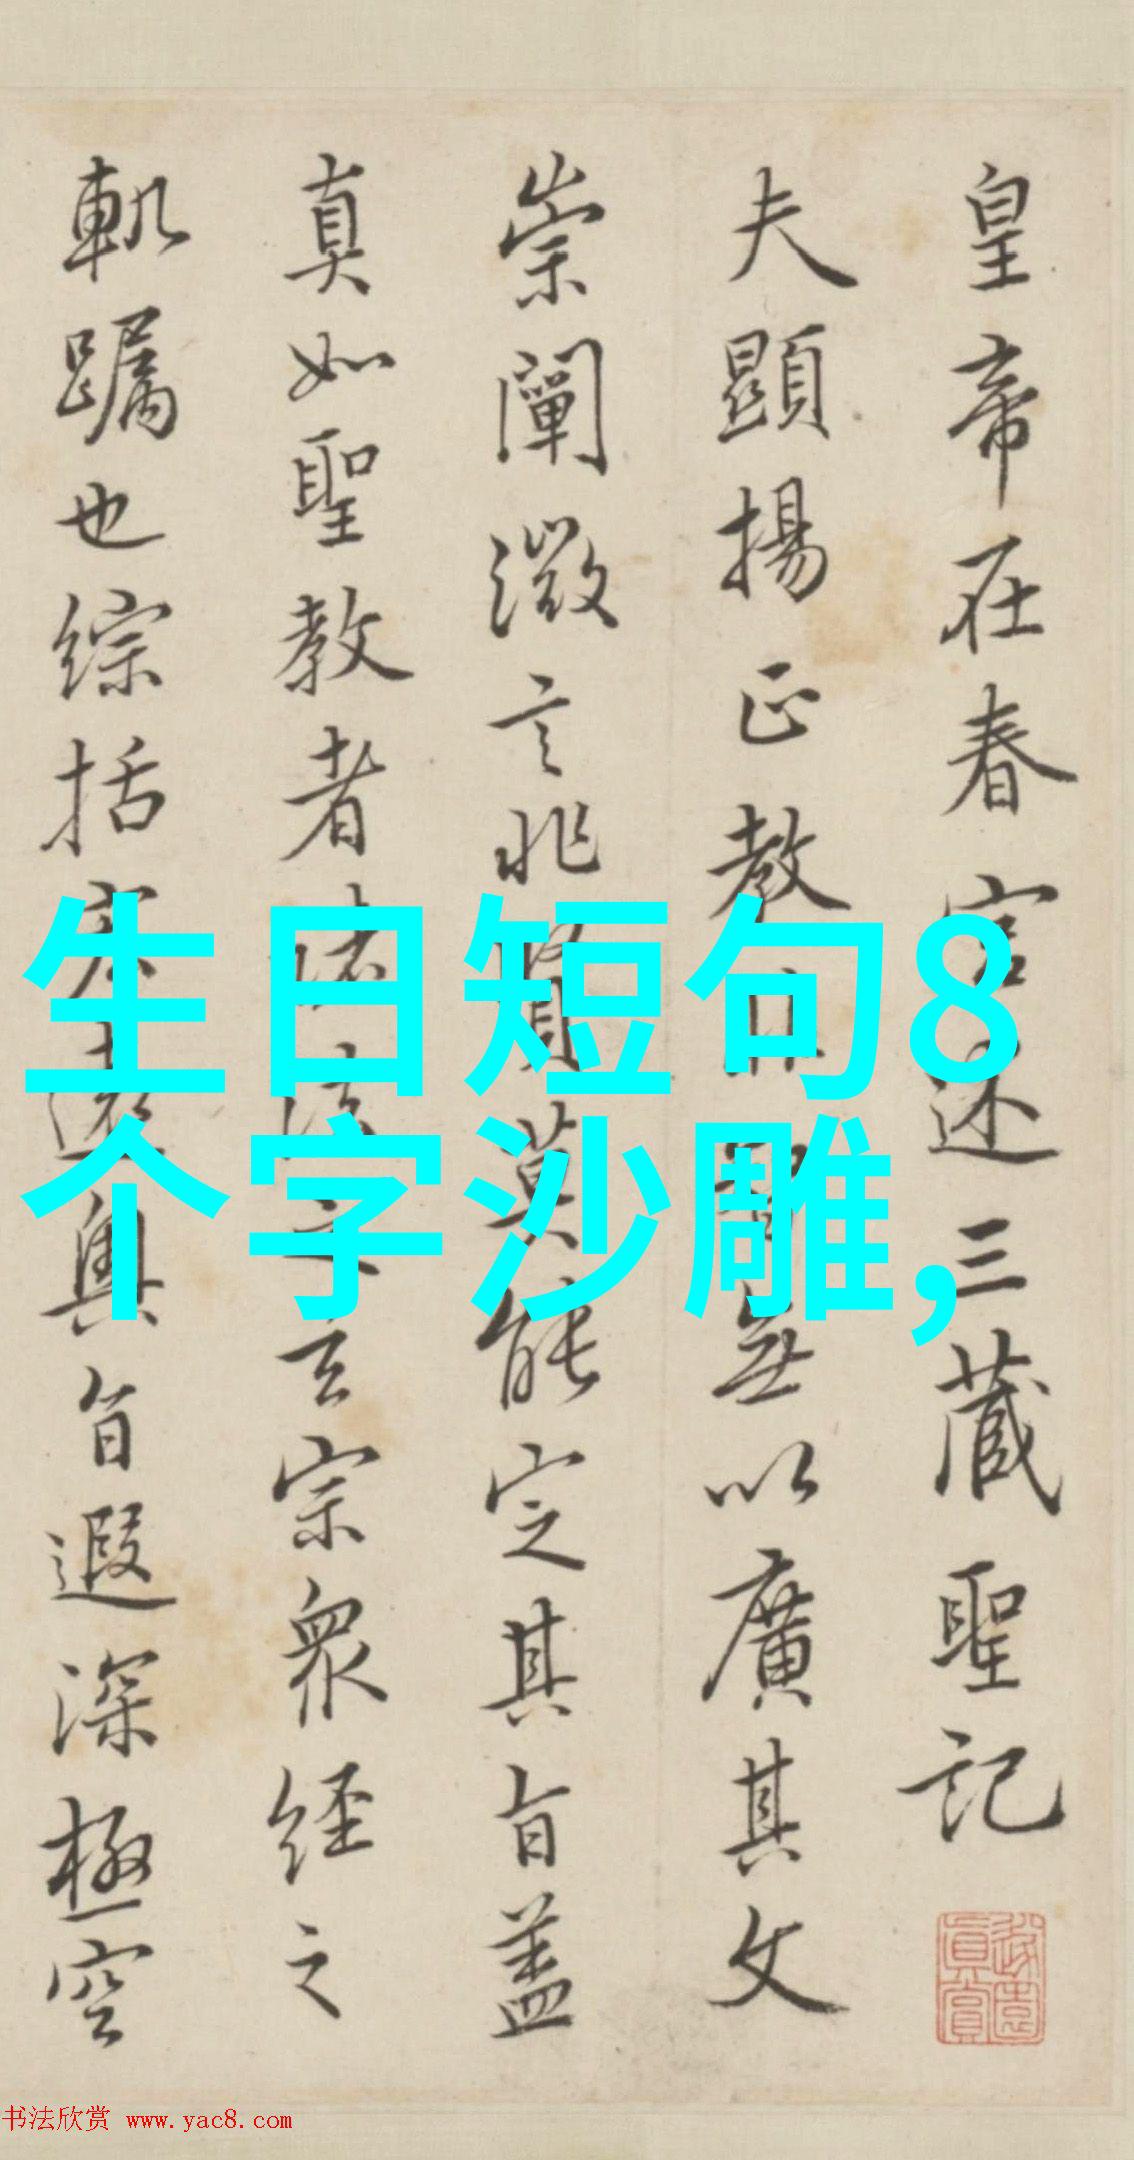 皇帝在春宫述三藏聖記
夫顯揚正教
無以廣其文
崇闡微言非賢莫能定其旨盖
真如聖教者諸法之玄宗衆経之
軌躅也綜括宏遠奥旨遐深極空
生日短句8
个字沙雕,
书法欣赏 www.yac8.com